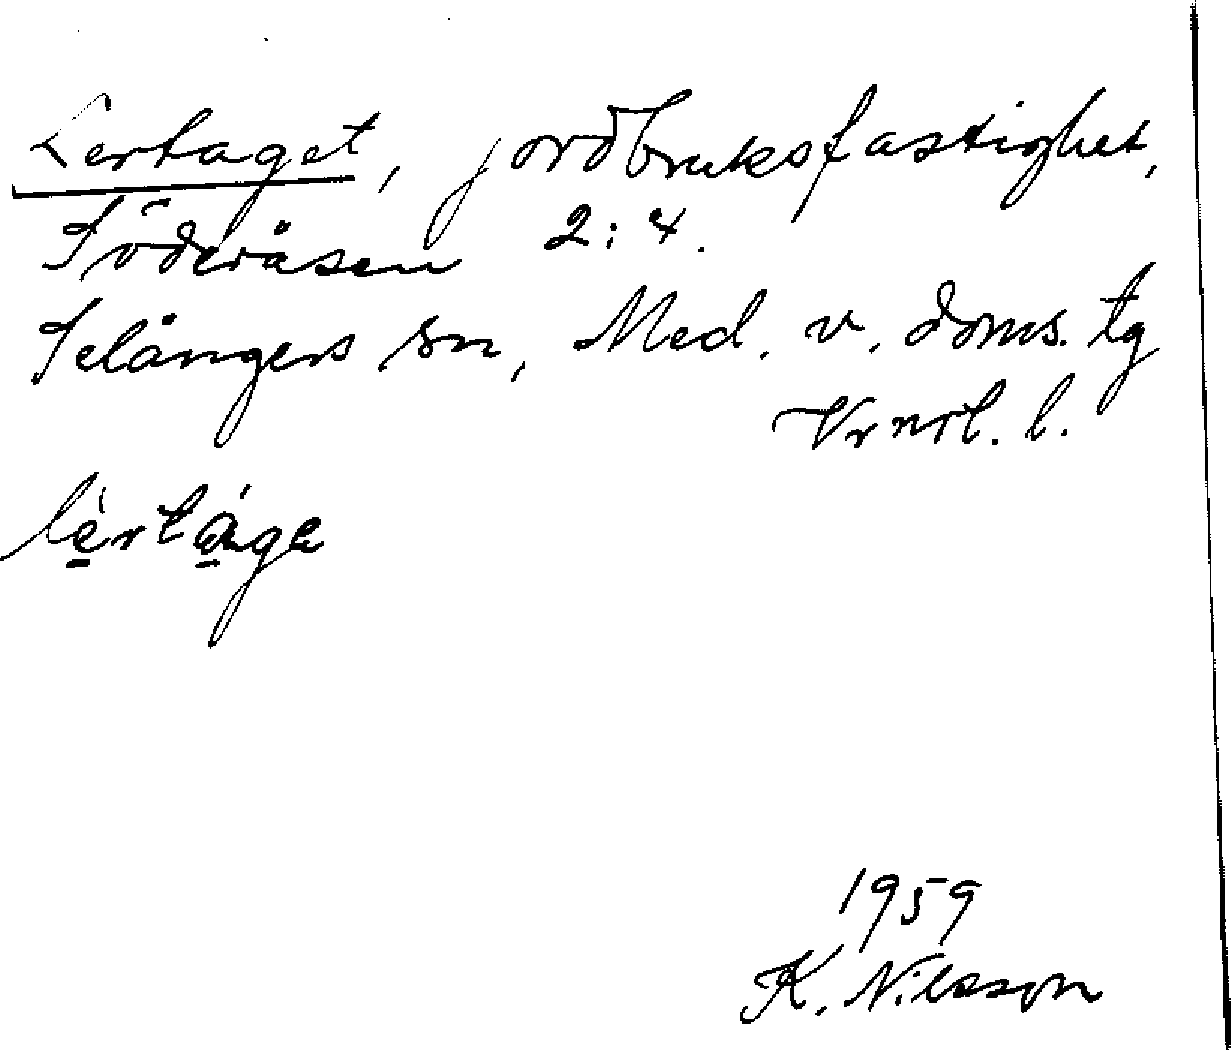 Lertaget, jordbruksfastighet,
Söderåsen 2:4.
Selångers sn, Med. v. doms. tg
Vrnrl. l.
lèrtáge
1959
K. Nilsson